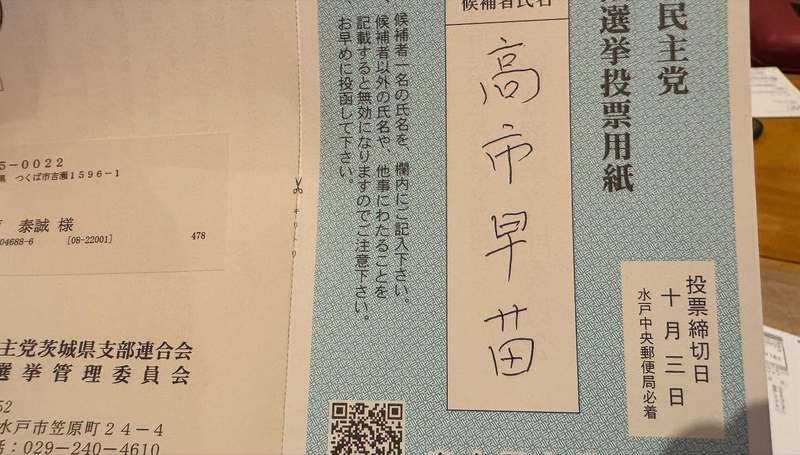 民主党
選挙投票用紙
投票締切日
十月三日
水戸中央郵便局必着
候補者氏名
高市早苗
候補者一名の氏名を、欄内にご記入下さい。
候補者以外の氏名や、他事にわたることを
記載すると無効になりますのでご注意下さい。
お早めに投函して下さい。
キリトリ
5-0022
県 つくば市吉瀬1596-1
泰誠 様
04688-6 [08-22001] 478
主党茨城県支部連合会
選挙管理委員会
52
水戸市笠原町24-4
話：029-240-4610